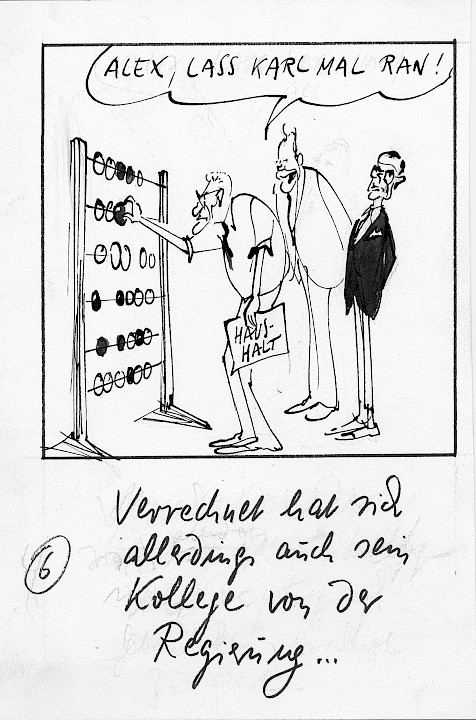 ALEX, LASS KARL MAL RAN!
HAUS-
HALT
Verrechnet hat sich
allerdings auch sein
6
Kollege von der
Regierung...